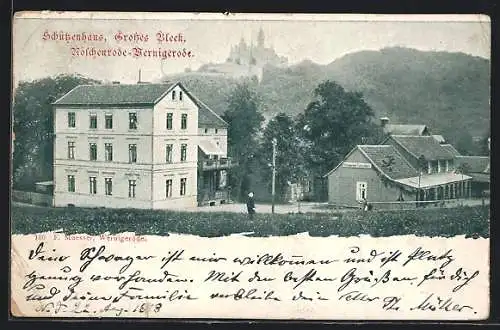 Schützenhaus, Großes Bleek,
Nöschenrode-Wernigerode.
180 F. Moesser, Wernigerode.
Dein Schwager ist mir willkommen und ist Platz
genug vorhanden. Mit den besten Grüßen für dich
und deine Familie verbleibe dein alter Th. Müller.
N. d. 22. Aug.